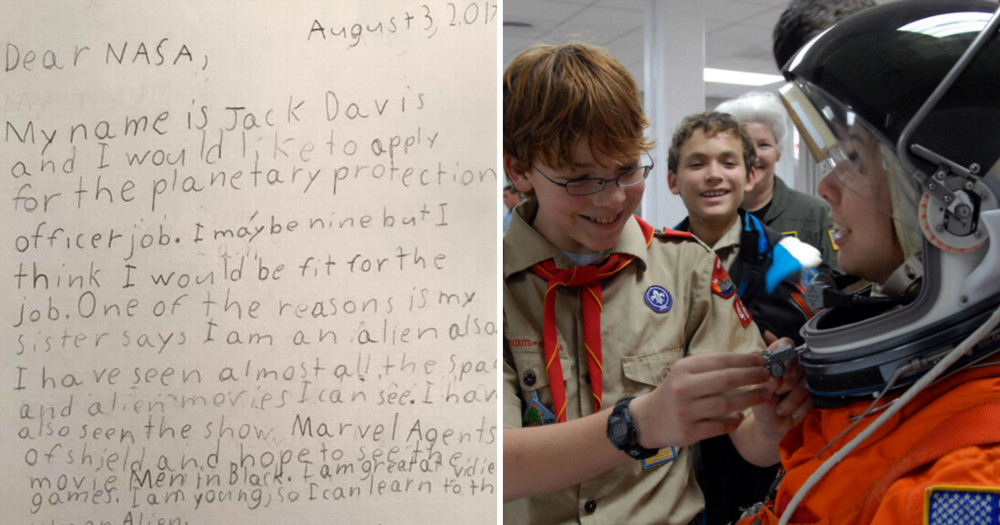 August 3, 2017
Dear NASA,
My name is Jack Davis
and I would like to apply
for the planetary protection
officer job. I may be nine but I
think I would be fit for the
job. One of the reasons is my
sister says I am an alien also
I have seen almost all the spa
and alien movies I can see. I hav
also seen the show Marvel Agents
of shield and hope to see the
movie Men in Black. I am great at vidie
games. I am young, so I can learn to th
Alien.